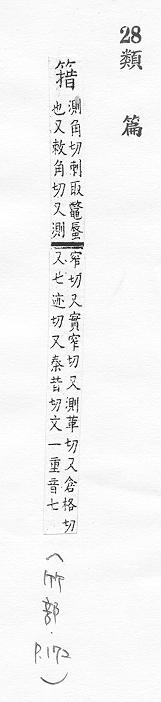 28
類篇
簎
測角切刺取鼈蜃
也又敕角切又測
窄切又實窄切又測革切又倉格切
又七迹切又秦昔切文一重音七
(竹部·P.172)